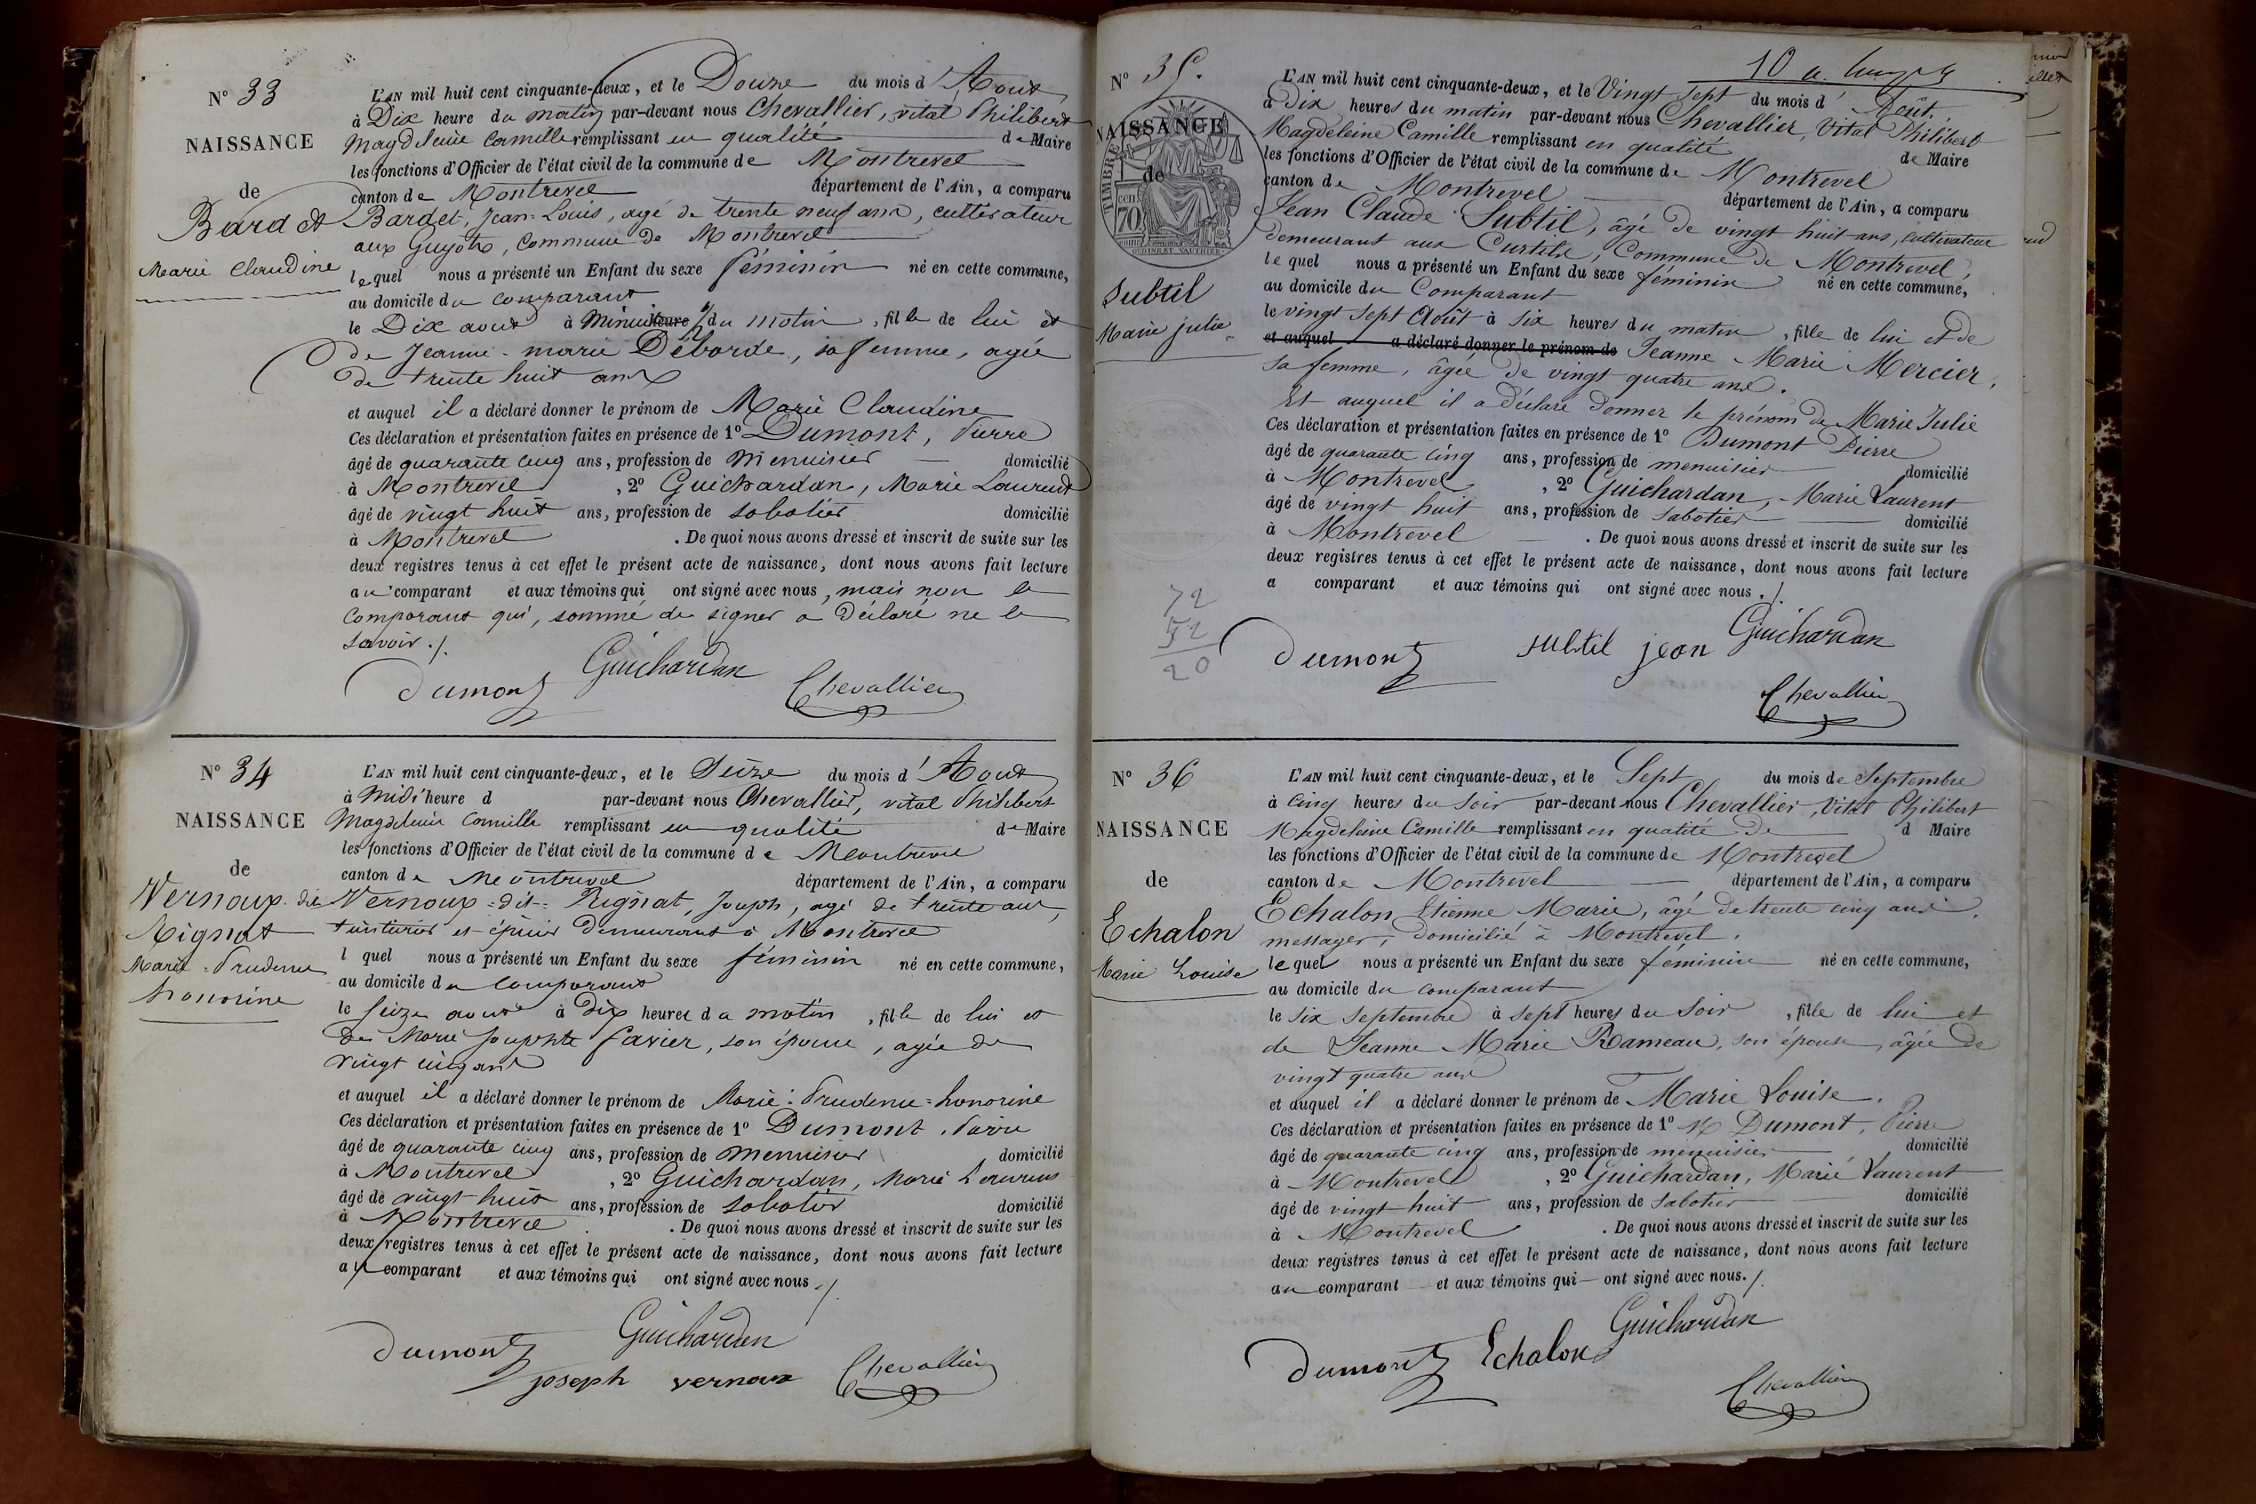 N° 33
NAISSANCE
de
Bardet
Marie Claudine
L'AN mil huit cent cinquante-deux, et le Douze du mois d'Aout
à Dix heure du matin par-devant nous Chevallier, vital Philibert
Magdeleine Camille remplissant en qualité de Maire
les fonctions d'Officier de l'état civil de la commune de Montrevel
canton de Montrevel département de l'Ain, a comparu
Bardet, Jean-Louis, agé de trente neuf ans, cultivateur
aux Guyots, Commune de Montrevel
lequel nous a présenté un Enfant du sexe féminin né en cette commune,
au domicile du comparant
le Dix aout à Minuit heure du matin, fille de lui et
de Jeanne-marie Déborde, sa femme, agée
de trente huit ans
et auquel il a déclaré donner le prénom de Marie Claudine
Ces déclaration et présentation faites en présence de 1° Dumont, Pierre
âgé de quarante cinq ans, profession de Menuisier domicilié
à Montrevel, 2° Guichardan, Marie Laurent
âgé de vingt huit ans, profession de sabotier domicilié
à Montrevel. De quoi nous avons dressé et inscrit de suite sur les
deux registres tenus à cet effet le présent acte de naissance, dont nous avons fait lecture
au comparant et aux témoins qui ont signé avec nous, mais non le
Comparant qui, sommé de signer a Déclaré ne le
savoir./.
Dumont Guichardan Chevallier
N° 34
NAISSANCE
de
Vernoux-dit
Rignat
Marie-Prudence
honorine
L'AN mil huit cent cinquante-deux, et le Seize du mois d'Aout
à Midi heure d par-devant nous Chevallier, vital Philibert
Magdeleine Camille remplissant en qualité de Maire
les fonctions d'Officier de l'état civil de la commune de Montrevel
canton de Montrevel département de l'Ain, a comparu
Vernoux-dit-Rignat, Joseph, agé de trente ans,
teinturier et épicier Demeurant à Montrevel
l quel nous a présenté un Enfant du sexe féminin né en cette commune,
au domicile du Comparant
le seize aout à Dix heures du matin, fille de lui et
de Marie Josephte favier, son épouse, agée de
vingt cinq ans
et auquel il a déclaré donner le prénom de Marie-Prudence-honorine
Ces déclaration et présentation faites en présence de 1° Dumont, Pierre
âgé de quarante cinq ans, profession de Menuisier domicilié
à Montrevel, 2° Guichardan, Marie Laurent
âgé de vingt-huit ans, profession de sabotier domicilié
à Montrevel. De quoi nous avons dressé et inscrit de suite sur les
deux registres tenus à cet effet le présent acte de naissance, dont nous avons fait lecture
au comparant et aux témoins qui ont signé avec nous./.
Dumont Guichardan
joseph vernoux Chevallier
10
N° 35.
NAISSANCE
de
TIMBRE
70
Subtil
Marie julie
L'AN mil huit cent cinquante-deux, et le Vingt sept du mois d'Août.
à Dix heures du matin par-devant nous Chevallier, Vital Philibert
Magdeleine Camille remplissant en qualité de Maire
les fonctions d'Officier de l'état civil de la commune de Montrevel
canton de Montrevel département de l'Ain, a comparu
Jean Claude Subtil, âgé de vingt huit ans, cultivateur
demeurant aux Curtils, Commune de Montrevel,
lequel nous a présenté un Enfant du sexe féminin né en cette commune,
au domicile du Comparant
le vingt sept Août à six heures du matin, fille de lui et de
et auquel a déclaré donner le prénom de Jeanne Marie Mercier,
sa femme, âgée de vingt quatre ans.
Et auquel il a déclaré donner le prénom de Marie Julie
Ces déclaration et présentation faites en présence de 1° Dumont Pierre
âgé de quarante cinq ans, profession de menuisier domicilié
à Montrevel, 2° Guichardan, Marie Laurent
âgé de vingt huit ans, profession de sabotier domicilié
à Montrevel. De quoi nous avons dressé et inscrit de suite sur les
deux registres tenus à cet effet le présent acte de naissance, dont nous avons fait lecture
a comparant et aux témoins qui ont signé avec nous./.
72
52
20
Dumont subtil jean Guichardan
Chevallier
N° 36
NAISSANCE
de
Echalon
Marie Louise
L'AN mil huit cent cinquante-deux, et le Sept du mois de Septembre
à cinq heures du soir par-devant nous Chevallier, Vital Philibert
Magdeleine Camille remplissant en qualité de d Maire
les fonctions d'Officier de l'état civil de la commune de Montrevel
canton de Montrevel département de l'Ain, a comparu
Echalon Etienne Marie, âgé de trente cinq ans,
messager, domicilié à Montrevel,
lequel nous a présenté un Enfant du sexe féminin né en cette commune,
au domicile du comparant
le six Septembre à sept heures du Soir, fille de lui et
de Jeanne Marie Rameau, son épouse, âgée de
vingt quatre ans
et auquel il a déclaré donner le prénom de Marie Louise.
Ces déclaration et présentation faites en présence de 1° M Dumont, Pierre
âgé de quarante cinq ans, profession de menuisier domicilié
à Montrevel, 2° Guichardan, Marie Laurent
âgé de vingt-huit ans, profession de sabotier domicilié
à Montrevel. De quoi nous avons dressé et inscrit de suite sur les
deux registres tenus à cet effet le présent acte de naissance, dont nous avons fait lecture
au comparant et aux témoins qui ont signé avec nous./.
Dumont Echalon Guichardan
Chevallier